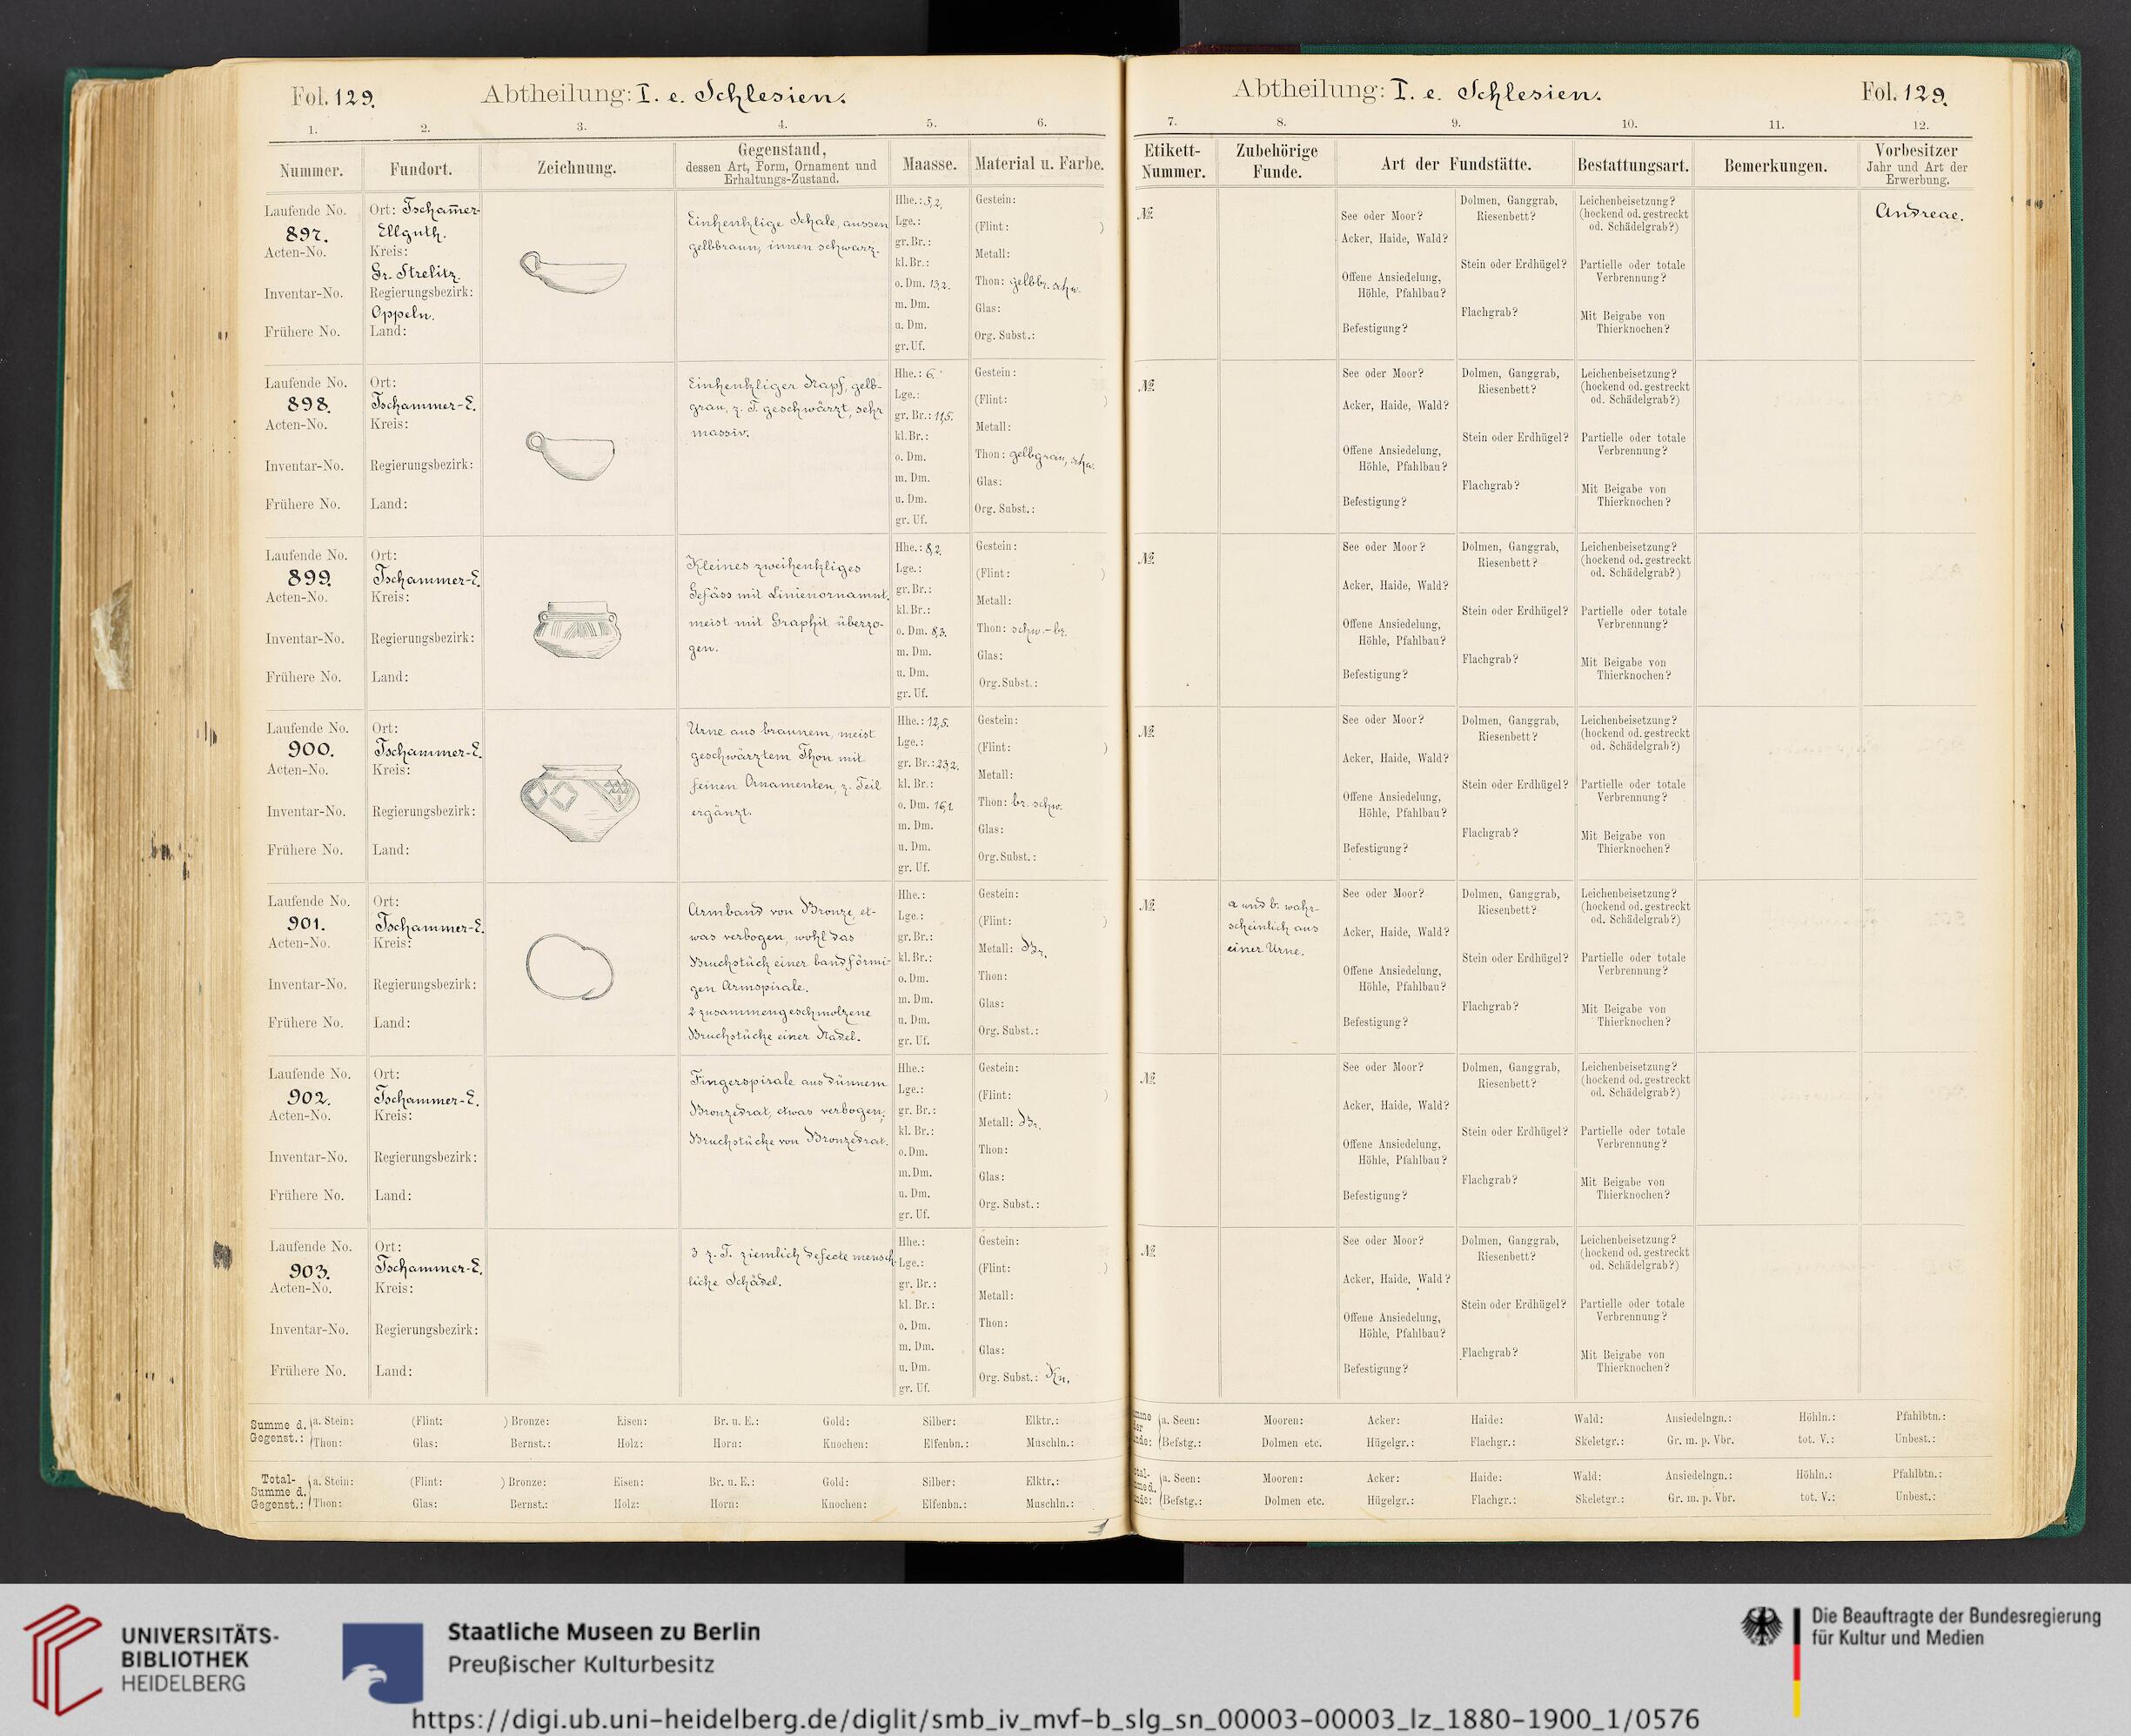 Fol. 129.
Abtheilung: I. e. Schlesien.
1. 2. 3. 4. 5. 6.
Nummer. Fundort. Zeichnung. Gegenstand, dessen Art, Form, Ornament und Erhaltungs-Zustand. Maasse. Material u. Farbe.
Laufende No. 897.
Acten-No.
Inventar-No.
Frühere No.
Ort: Tscham̅er-
Ellguth.
Kreis:
Gr. Strelitz.
Regierungsbezirk:
Oppeln.
Land:
Einhenklige Schale, aussen
gelbbraun, innen schwarz.
Hhe.: 5,2.
Lge.:
gr. Br.:
kl. Br.:
o. Dm. 13,2.
m. Dm.
u. Dm.
gr. Uf.
Gestein:
(Flint: )
Metall:
Thon: gelbbr. schw.
Glas:
Org. Subst.:
Laufende No. 898.
Acten-No.
Inventar-No.
Frühere No.
Ort:
Tschammer-E.
Kreis:
Regierungsbezirk:
Land:
Einhenkliger Napf, gelb-
grau, z. T. geschwärzt, sehr
massiv.
Hhe.: 6.
Lge.:
gr. Br.: 11,5.
kl. Br.:
o. Dm.
m. Dm.
u. Dm.
gr. Uf.
Gestein:
(Flint: )
Metall:
Thon: gelbgrau, schw.
Glas:
Org. Subst.:
Laufende No. 899.
Acten-No.
Inventar-No.
Frühere No.
Ort:
Tschammer-E.
Kreis:
Regierungsbezirk:
Land:
Kleines zweihenkliges
Gefäss mit Linienornamnt.
meist mit Graphit überzo-
gen.
Hhe.: 8,2.
Lge.:
gr. Br.:
kl. Br.:
o. Dm. 8,3.
m. Dm.
u. Dm.
gr. Uf.
Gestein:
(Flint: )
Metall:
Thon: schw.-br.
Glas:
Org. Subst.:
Laufende No. 900.
Acten-No.
Inventar-No.
Frühere No.
Ort:
Tschammer-E.
Kreis:
Regierungsbezirk:
Land:
Urne aus braunem, meist
geschwärztem Thon mit
feinen Ornamenten, z. Teil
ergänzt.
Hhe.: 12,5.
Lge.:
gr. Br.: 23,2.
kl. Br.:
o. Dm. 16,1
m. Dm.
u. Dm.
gr. Uf.
Gestein:
(Flint: )
Metall:
Thon: br. schw.
Glas:
Org. Subst.:
Laufende No. 901.
Acten-No.
Inventar-No.
Frühere No.
Ort:
Tschammer-E.
Kreis:
Regierungsbezirk:
Land:
Armband von Bronze, et-
was verbogen, wohl das
Bruchstück einer bandförmi-
gen Armspirale.
2 zusammengeschmolzene
Bruchstücke einer Nadel.
Hhe.:
Lge.:
gr. Br.:
kl. Br.:
o. Dm.
m. Dm.
u. Dm.
gr. Uf.
Gestein:
(Flint: )
Metall: Br.
Thon:
Glas:
Org. Subst.:
Laufende No. 902.
Acten-No.
Inventar-No.
Frühere No.
Ort:
Tschammer-E.
Kreis:
Regierungsbezirk:
Land:
Fingerspirale aus dünnem
Bronzedrat, etwas verbogen;
Bruchstücke von Bronzedrat.
Hhe.:
Lge.:
gr. Br.:
kl. Br.:
o. Dm.
m. Dm.
u. Dm.
gr. Uf.
Gestein:
(Flint: )
Metall: Br.
Thon:
Glas:
Org. Subst.:
Laufende No. 903.
Acten-No.
Inventar-No.
Frühere No.
Ort:
Tschammer-E.
Kreis:
Regierungsbezirk:
Land:
3 z. T. ziemlich defecte mensch-
liche Schädel.
Hhe.:
Lge.:
gr. Br.:
kl. Br.:
o. Dm.
m. Dm.
u. Dm.
gr. Uf.
Gestein:
(Flint: )
Metall:
Thon:
Glas:
Org. Subst.: Kn.
Summe d. Gegenst.:
a. Stein: (Flint: ) Bronze: Eisen: Br. u. E.: Gold: Silber: Elktr.:
Thon: Glas: Bernst.: Holz: Horn: Knochen: Elfenbn.: Muschln.:
Total-Summe d. Gegenst.:
a. Stein: (Flint: ) Bronze: Eisen: Br. u. E.: Gold: Silber: Elktr.:
Thon: Glas: Bernst.: Holz: Horn: Knochen: Elfenbn.: Muschln.:
Abtheilung: I. e. Schlesien.
Fol. 129.
7. 8. 9. 10. 11. 12.
Etikett-Nummer. Zubehörige Funde. Art der Fundstätte. Bestattungsart. Bemerkungen. Vorbesitzer Jahr und Art der Erwerbung.
№
See oder Moor?
Acker, Haide, Wald?
Offene Ansiedelung,
Höhle, Pfahlbau?
Befestigung?
Dolmen, Ganggrab,
Riesenbett?
Stein oder Erdhügel?
Flachgrab?
Leichenbeisetzung?
(hockend od. gestreckt
od. Schädelgrab?)
Partielle oder totale
Verbrennung?
Mit Beigabe von
Thierknochen?
Andreae.
№
See oder Moor?
Acker, Haide, Wald?
Offene Ansiedelung,
Höhle, Pfahlbau?
Befestigung?
Dolmen, Ganggrab,
Riesenbett?
Stein oder Erdhügel?
Flachgrab?
Leichenbeisetzung?
(hockend od. gestreckt
od. Schädelgrab?)
Partielle oder totale
Verbrennung?
Mit Beigabe von
Thierknochen?
№
See oder Moor?
Acker, Haide, Wald?
Offene Ansiedelung,
Höhle, Pfahlbau?
Befestigung?
Dolmen, Ganggrab,
Riesenbett?
Stein oder Erdhügel?
Flachgrab?
Leichenbeisetzung?
(hockend od. gestreckt
od. Schädelgrab?)
Partielle oder totale
Verbrennung?
Mit Beigabe von
Thierknochen?
№
See oder Moor?
Acker, Haide, Wald?
Offene Ansiedelung,
Höhle, Pfahlbau?
Befestigung?
Dolmen, Ganggrab,
Riesenbett?
Stein oder Erdhügel?
Flachgrab?
Leichenbeisetzung?
(hockend od. gestreckt
od. Schädelgrab?)
Partielle oder totale
Verbrennung?
Mit Beigabe von
Thierknochen?
№
a und b. wahr-
scheinlich aus
einer Urne.
See oder Moor?
Acker, Haide, Wald?
Offene Ansiedelung,
Höhle, Pfahlbau?
Befestigung?
Dolmen, Ganggrab,
Riesenbett?
Stein oder Erdhügel?
Flachgrab?
Leichenbeisetzung?
(hockend od. gestreckt
od. Schädelgrab?)
Partielle oder totale
Verbrennung?
Mit Beigabe von
Thierknochen?
№
See oder Moor?
Acker, Haide, Wald?
Offene Ansiedelung,
Höhle, Pfahlbau?
Befestigung?
Dolmen, Ganggrab,
Riesenbett?
Stein oder Erdhügel?
Flachgrab?
Leichenbeisetzung?
(hockend od. gestreckt
od. Schädelgrab?)
Partielle oder totale
Verbrennung?
Mit Beigabe von
Thierknochen?
№
See oder Moor?
Acker, Haide, Wald?
Offene Ansiedelung,
Höhle, Pfahlbau?
Befestigung?
Dolmen, Ganggrab,
Riesenbett?
Stein oder Erdhügel?
Flachgrab?
Leichenbeisetzung?
(hockend od. gestreckt
od. Schädelgrab?)
Partielle oder totale
Verbrennung?
Mit Beigabe von
Thierknochen?
a. Seen: Mooren: Acker: Haide: Wald: Ansiedelngn.: Höhln.: Pfahlbtn.:
Befstg.: Dolmen etc. Hügelgr.: Flachgr.: Skeletgr.: Gr. m. p. Vbr. tot. V.: Unbest.:
a. Seen: Mooren: Acker: Haide: Wald: Ansiedelngn.: Höhln.: Pfahlbtn.:
Befstg.: Dolmen etc. Hügelgr.: Flachgr.: Skeletgr.: Gr. m. p. Vbr. tot. V.: Unbest.:
UNIVERSITÄTS-
BIBLIOTHEK
HEIDELBERG
Staatliche Museen zu Berlin
Preußischer Kulturbesitz
Die Beauftragte der Bundesregierung
für Kultur und Medien
https://digi.ub.uni-heidelberg.de/diglit/smb_iv_mvf-b_slg_sn_00003-00003_lz_1880-1900_1/0576